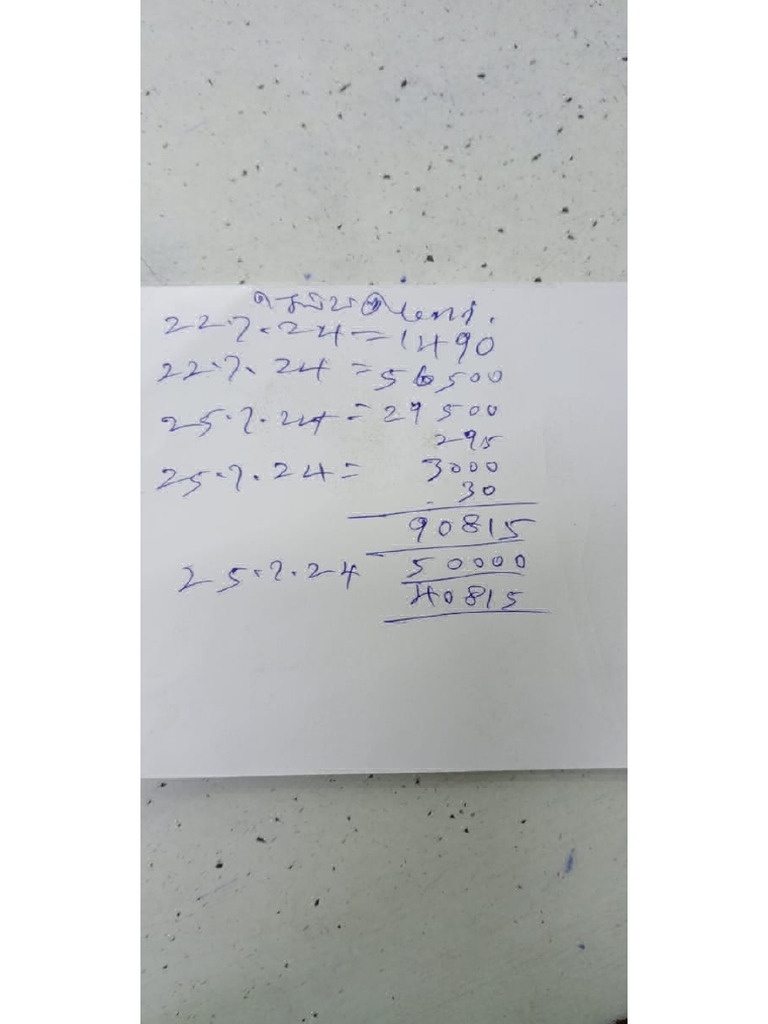 22.7.24=1490
22.7.24=56500
25.7.24=29500
295
25.7.24= 3000
30
90815
25.7.24 50000
40815